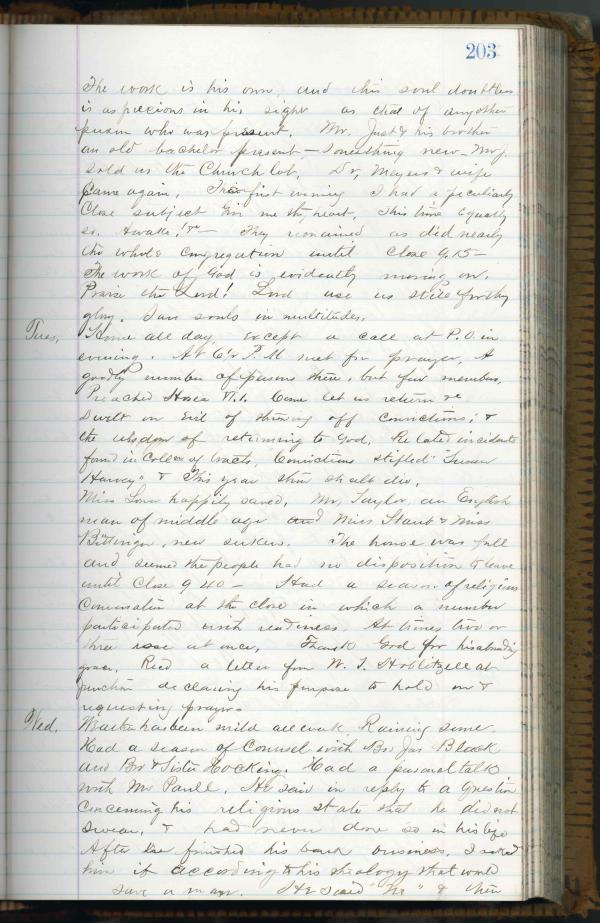 203
The work is his own and this soul doubtless
is as precious in his sight as that of any other
person who was present. Mr. Just & his brother
an old bachelor present, – something new – Mr J.
sold us the Church lot. Dr, Meyers & wife
came again. The first evening I had a peculiarly
close subject Give me thy heart. This time Equally
so. Awake! &c – They remained as did nearly
the whole congregation until close 9.15 –
The work of God is evidently moving on.
Praise the Lord! Lord use us still for thy
glory. Save souls in multitudes.
Tues, Home all day, except a call at P.O. in
evening. At P. M met for prayer, A
goodly number of persons there, but few members,
Preached Hosea VI.1. Come let us return &c
Dwelt on Evil of throwing off convictions; &
the wisdom of returning to God. Related incidents
found in Collen of tracts, Convictions stifled "Susan
Harvey" & This year thou shalt die.
Miss happily saved. Mr. Taylor, an English
man of middle age and Miss & Miss
Bittinger, new seekers. The house was full
and seemed the people had no disposition to leave
until Close 9 40 – Had a season of religious
Conversation at the close in which a number
participated with readiness. At times two or
three rose at once. Thank God for his abounding
grace. Recd a letter from W. T. Hoblitzell at
junction declaring his purpose to hold on &
requesting prayer.
Wed. Weather has been mild all week. Raining some.
Had a season of Counsel with Bro Jas Black
and Bro & Sister Hocking. Had a personal talk
with Mr Paull. He said in reply to a question
concerning his religious state that he did not
swear, & had never done so in his life
After he finished his bank business, I asked
him if according to his theology that would
save a man. He said "No" & then